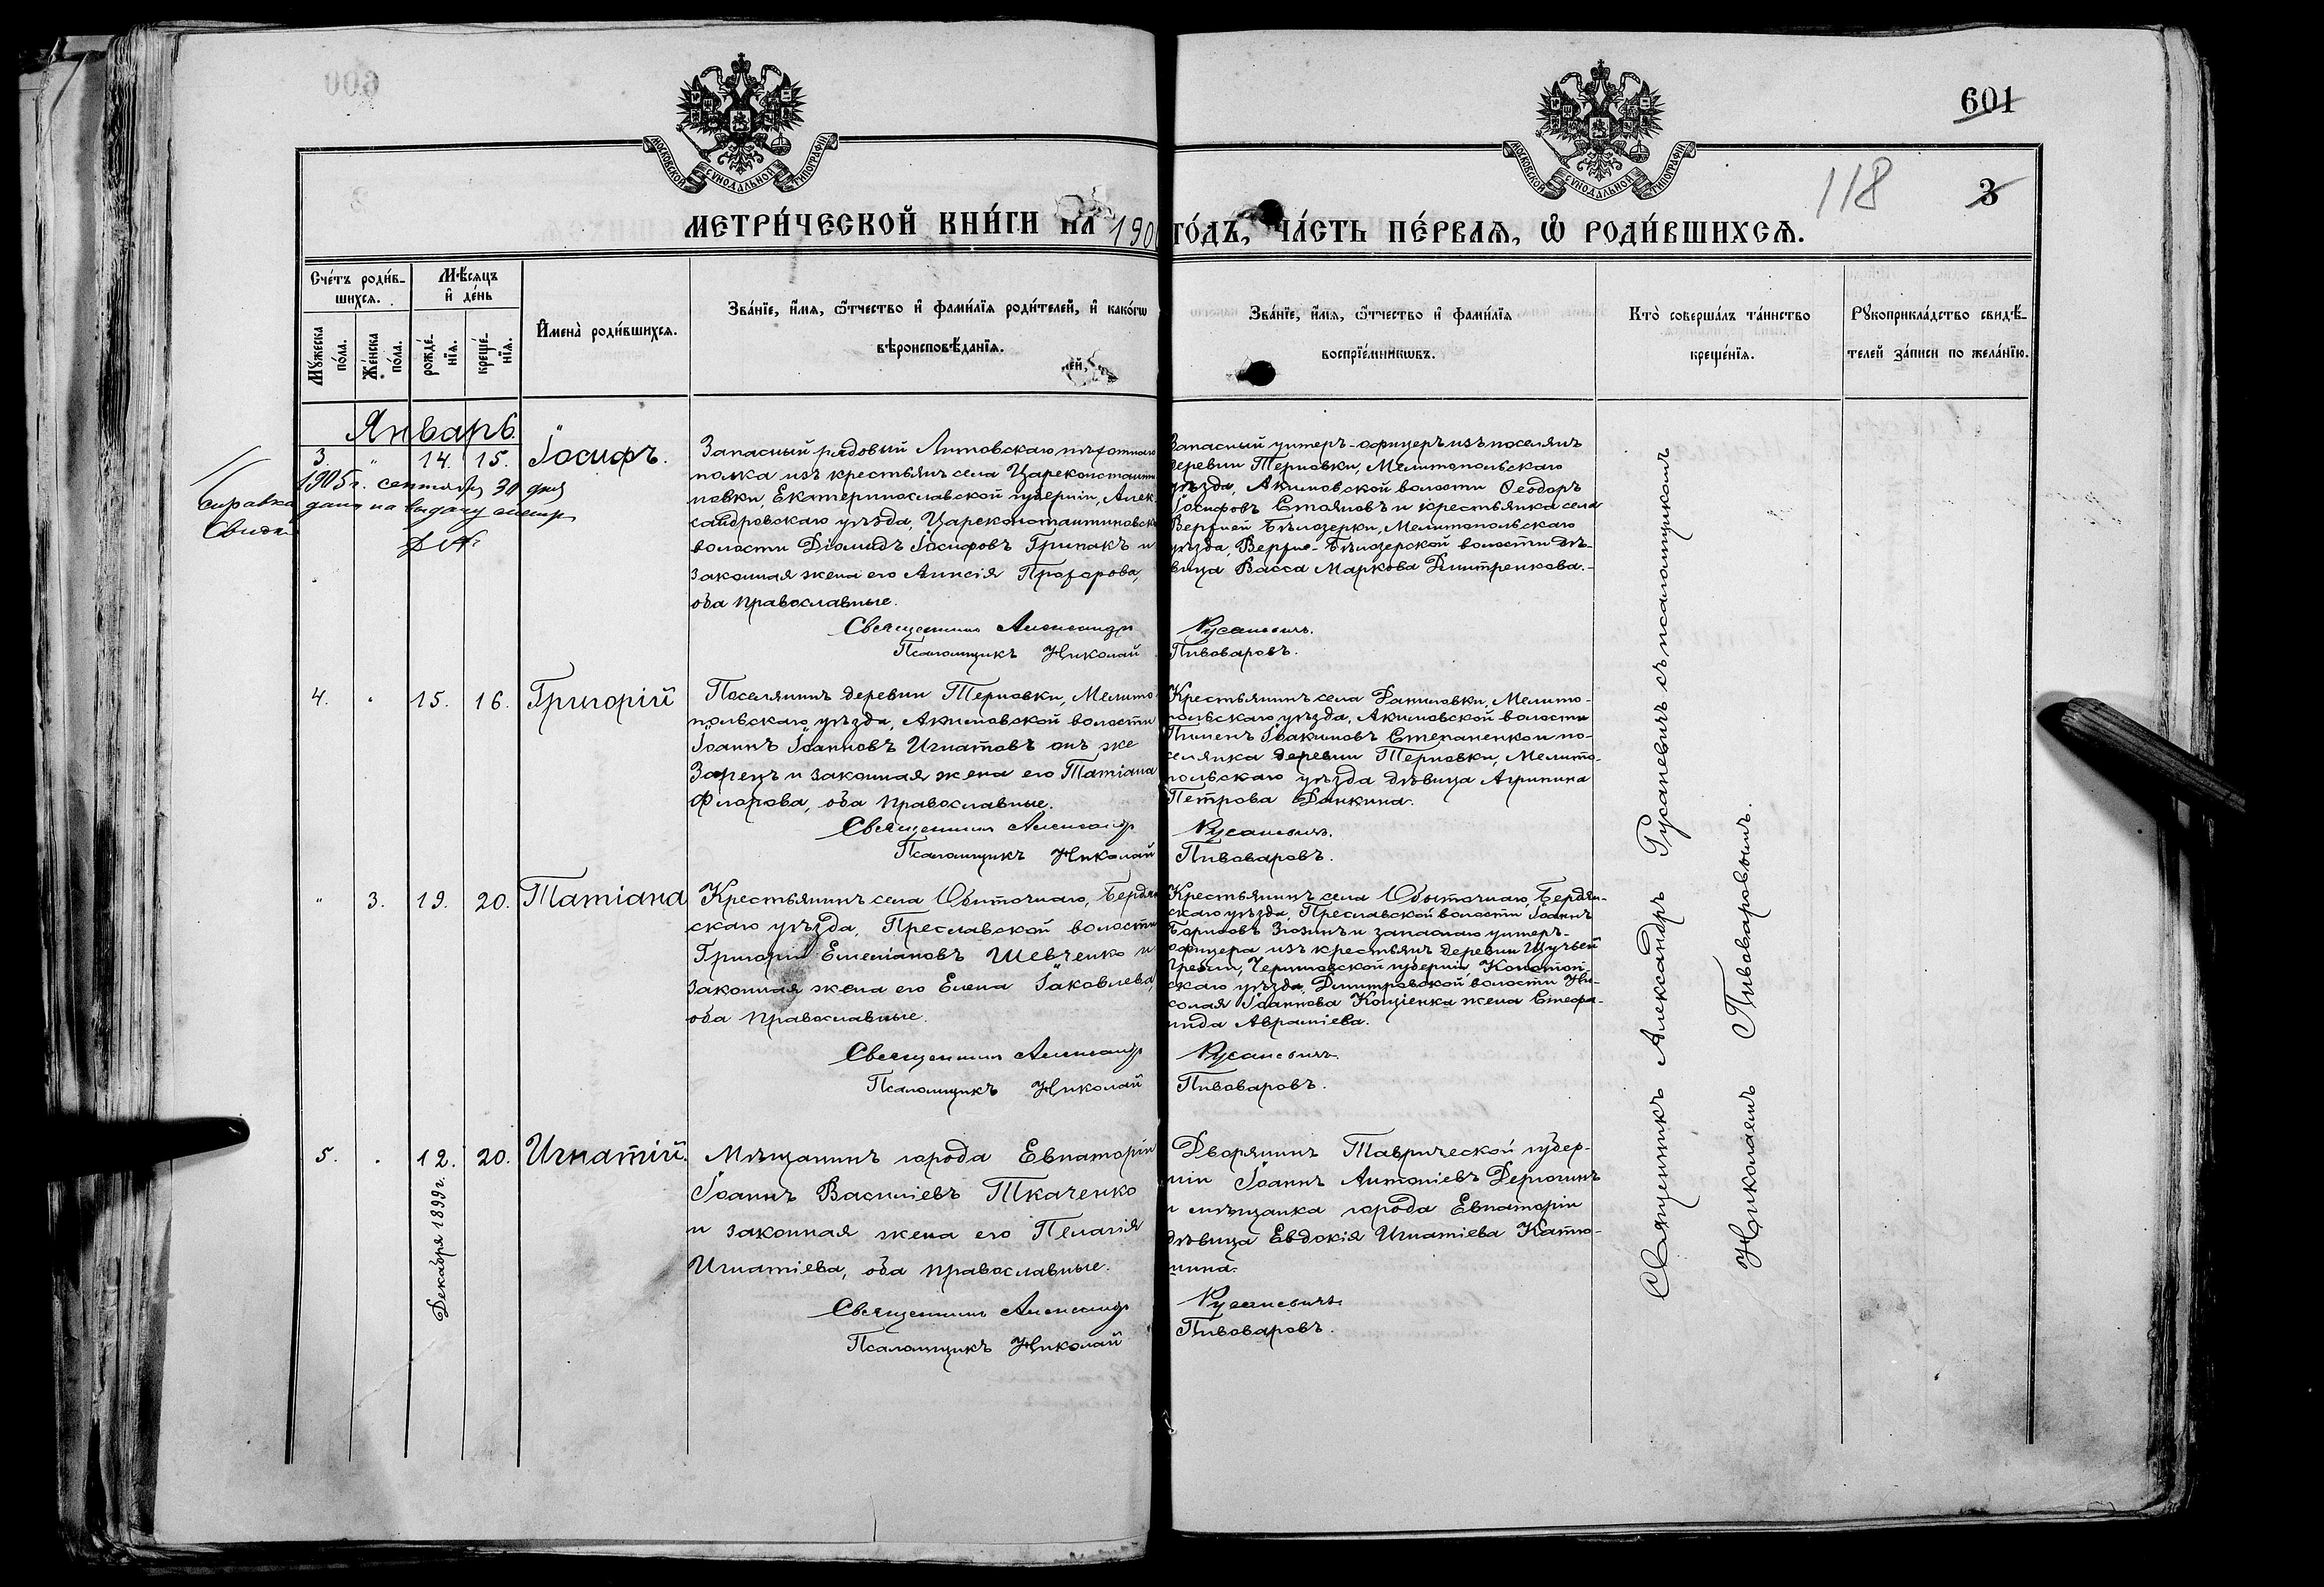 601
118
3
МОСКОВСКОЙ СѴНОДАЛЬНОЙ ТИПОГРАФІИ
МОСКОВСКОЙ СѴНОДАЛЬНОЙ ТИПОГРАФІИ
МЕТРИ́ЧЕСКОЙ КНИ́ГИ НА 190 ГО́ДЪ, ЧА́СТЬ ПЕ́РВАЯ, Ѡ҆ РОДИ́ВШИХСЯ.
Сче́тъ роди́в-
шихся.
Мѣ́сяцъ
и҆ де́нь
Мꙋ́жеска
по́ла.
Же́нска
по́ла.
рожде́-
нїя.
креще́-
нїя.
И҆мена̀ роди́вшихся.
Зва́нїе, и҆́мя, ѻ҆́тчество и҆ фами́лїя роди́телей, и҆ како́гѡ
вѣроисповѣ́данїя.
Зва́нїе, и҆́мя, ѻ҆́тчество и҆ фами́лїя
воспрїе́мникѡвъ.
Кто̀ соверша́лъ та́инство
креще́нїя.
Рꙋкоприкла́дство свидѣ́-
телей за́писи по жела́нїю.
Январь.
3. " 14. 15. Іосифъ.
1905 г. сентября 30 дня
справка дана на выдачу
Запасный рядовый Литовскаго пѣхотнаго
полка изъ крестьянъ села Цареконстанти
новки, Екатеринославской губерніи, Алек-
сандровскаго уѣзда, Цареконстантиновск
волости Діомидъ Іосифовъ Гринакъ и
законная жена его Анисія Прохорова,
оба православные.
Священникъ Александръ
Псаломщикъ Николай
Запасный унтеръ-офицеръ изъ поселянъ
деревни Терновки, Мелитопольскаго
уѣзда, Акимовской волости Ѳеодоръ
Іосифовъ Стояновъ и крестьянка села
Верхней Бѣлозерки, Мелитопольскаго
уѣзда, Верхне-Бѣлозерской волости дѣ-
вица Васса Маркова Дмитренкова.
Русаневичъ.
Пивоваровъ.
4. " 15. 16. Григорій
Поселянинъ деревни Терновки, Мелито
польскаго уѣзда, Акимовской волости
Іоаннъ Іоанновъ Игнатовъ онъ же
Зарецъ и законная жена его Татіана
Флорова, оба православные.
Священникъ Александръ
Псаломщикъ Николай
Крестьянинъ села Даниловки, Мелито-
польскаго уѣзда, Акимовской волости
Пименъ Іоакимовъ Степаненко и по-
селянка деревни Терновки, Мелито-
польскаго уѣзда дѣвица Агрипина
Петрова Данкина.
Русаневичъ.
Пивоваровъ.
" 3. 19. 20. Татіана
Крестьянинъ села Обиточнаго, Бердян
скаго уѣзда, Преславской волости
Григорій Емеліановъ Шевченко и
законная жена его Елена Іаковлева,
оба православные.
Священникъ Александръ
Псаломщикъ Николай
Крестьянинъ села Обыточнаго, Бердян-
скаго уѣзда, Преславской волости Іоаннъ
Борисовъ Зюзинъ и запаснаго унтеръ-
офицера изъ крестьянъ деревни Щучьей
Гребли, Черниговской губерніи, Конотоп-
скаго уѣзда, Дмитровской волости Ни-
колая Іоаннова Коціенка жена Стефа-
нида Авраміева.
Русаневичъ.
Пивоваровъ.
5. " 12. 20. Игнатій.
Декабря 1899 г.
Мѣщанинъ города Евпаторіи
Іоаннъ Василіевъ Ткаченко
и законная жена его Пелагія
Игнатіева, оба православные.
Священникъ Александръ
Псаломщикъ Николай
Дворянинъ Таврической губер-
ніи Іоаннъ Антоніевъ Дерюгинъ
и мѣщанка города Евпаторіи
дѣвица Евдокія Игнатіева Катю-
шина.
Русаневичъ
Пивоваровъ.
Священникъ Александръ Русаневичъ съ псаломщикомъ
Николаемъ Пивоваровымъ.